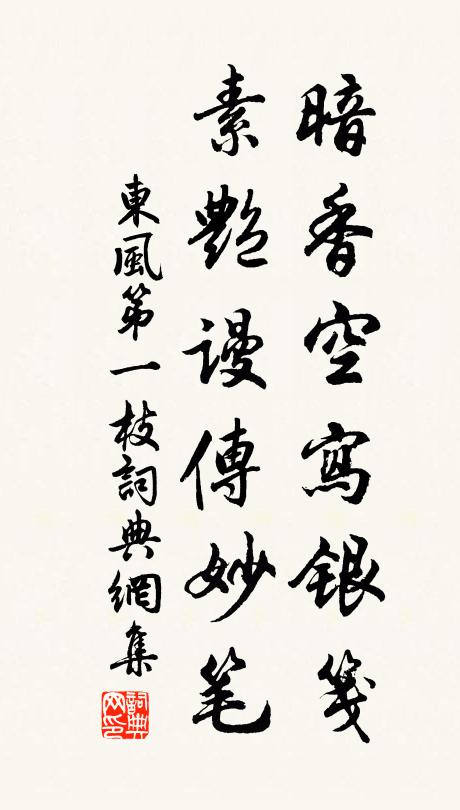 暗香空寫銀箋
素艷謾傳妙笔
東風第一枝詞典網集
詞典網印